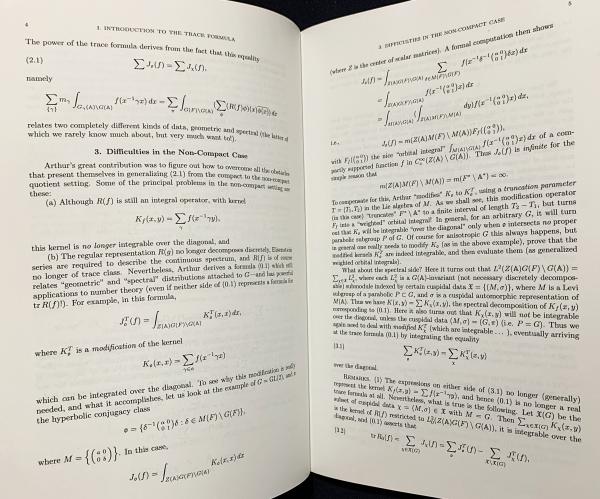 4
1. INTRODUCTION TO THE TRACE FORMULA
The power of the trace formula derives from the fact that this equality
(2.1) ∑ J_o(f) = ∑ J_χ(f),
namely
∑_{γ} m_γ ∫_{G_γ(A)\G(A)} f(x⁻¹γx) dx = ∑_π ∫_{G(F)\G(A)} (∑_φ (R(f)φ)(x)φ(x)) dx
relates two completely different kinds of data, geometric and spectral (the latter of
which we rarely know much about, but very much want to!).
3. Difficulties in the Non-Compact Case
Arthur's great contribution was to figure out how to overcome all the obstacles
that present themselves in generalizing (2.1) from the compact to the non-compact
quotient setting. Some of the principal problems in the non-compact setting are
these:
(a) Although R(f) is still an integral operator, with kernel
K_f(x, y) = ∑_γ f(x⁻¹γy),
this kernel is no longer integrable over the diagonal, and
(b) The regular representation R(g) no longer decomposes discretely, Eisenstein
series are required to describe the continuous spectrum, and R(f) is of course
no longer of trace class. Nevertheless, Arthur derives a formula (0.1) which still
relates "geometric" and "spectral" distributions attached to G—and has powerful
applications to number theory (even if neither side of (0.1) represents a formula for
tr R(f)!). For example, in this formula,
J_o^T(f) = ∫_{Z(A)G(F)\G(A)} K_o^T(x, x) dx,
where K_o^T is a modification of the kernel
K_o(x, x) = ∑_{γ∈o} f(x⁻¹γy)
which can be integrated over the diagonal. To see why this modification is really
needed, and what it accomplishes, let us look at the example of G = GL(2), and
the hyperbolic conjugacy class
o = {δ⁻¹(α 0 0 1)δ : δ ∈ M(F) \ G(F)},
where M = {(a 0 0 b)}. In this case,
J_o(f) = ∫_{Z(A)G(F)\G(A)} K_o(x, x) dx
3. DIFFICULTIES IN THE NON-COMPACT CASE
5
(where Z is the center of scalar matrices). A formal computation then shows
J_o(f) = ∫_{Z(A)G(F)\G(A)} ∑_{δ∈M(F)\G(F)} f(x⁻¹δ⁻¹(α 0 0 1)δx) dx
= ∫_{Z(A)M(F)\G(A)} f(x⁻¹(α 0 0 1)x) dx
= ∫_{M(A)\G(A)} (∫_{Z(A)M(F)\M(A)} dy) f(x⁻¹(α 0 0 1)x) dx,
i.e.,
J_o(f) = m(Z(A)M(F) \ M(A))F_f((α 0 0 1)),
with F_f((α 0 0 1)) the nice "orbital integral" ∫_{M(A)\G(A)} f(x⁻¹(α 0 0 1)x) dx of a com-
pactly supported function f in C_c^∞(Z(A) \ G(A)). Thus J_o(f) is infinite for the
simple reason that
m(Z(A)M(F) \ M(A)) = m(F* \ A*) = ∞.
To compensate for this, Arthur "modifies" K_o to K_o^T, using a truncation parameter
T = (T₁, T₂) in the Lie algebra of M. As we shall see, this modification operator
(in this case) "truncates" F* \ A* to a finite interval of length T₂ − T₁, but turns
F_f into a "weighted" orbital integral! In general, for an arbitrary G, it will turn
out that K_o will be integrable "over the diagonal" only when o intersects no proper
parabolic subgroup P of G. (Of course for anisotropic G this always happens, but
in general one really needs to modify K_o (as in the above example), prove that the
modified kernels K_o^T are indeed integrable, and then evaluate them (as generalized
weighted orbital integrals).
What about the spectral side? Here it turns out that L²(Z(A)G(F) \ G(A)) =
∑_{χ∈X} L_χ², where each L_χ² is a G(A)-invariant (not necessary discretely decompos-
able) submodule indexed by certain cuspidal data X = {(M, σ)}, where M is a Levi
subgroup of a parabolic P ⊂ G, and σ is a cuspidal automorphic representation of
M(A). Thus we have K(x, y) = ∑ K_χ(x, y), the spectral decomposition of K_f(x, y)
corresponding to (0.1). Here it also turns out that K_χ(x, y) will not be integrable
over the diagonal, unless the cuspidal data (M, σ) = (G, π) (i.e. P = G). Thus we
again need to deal with modified K_χ^T (which are integrable ... ), eventually arriving
at the trace formula (0.1) by integrating the equality
(3.1) ∑_o K_o^T(x, y) = ∑_χ K_χ^T(x, y)
over the diagonal.
REMARKS. (1) The expressions on either side of (3.1) no longer (generally)
represent the kernel K_f(x, x) = ∑ f(x⁻¹γy), and hence (0.1) is no longer a real
trace formula at all. Nevertheless, what is true is the following. Let X(G) be the
subset of cuspidal data χ = (M, σ) ∈ X with M = G. Then ∑_{χ∈X(G)} K_χ(x, y)
is the kernel of R(f) restricted to L₀²(Z(A)G(F) \ G(A)), it is integrable over the
diagonal, and (0.1) asserts that
(3.2) tr R₀(f) = ∑_{χ∈X(G)} J_χ(f) = ∑_o J_o^T(f) − ∑_{X\X(G)} J_χ^T(f),